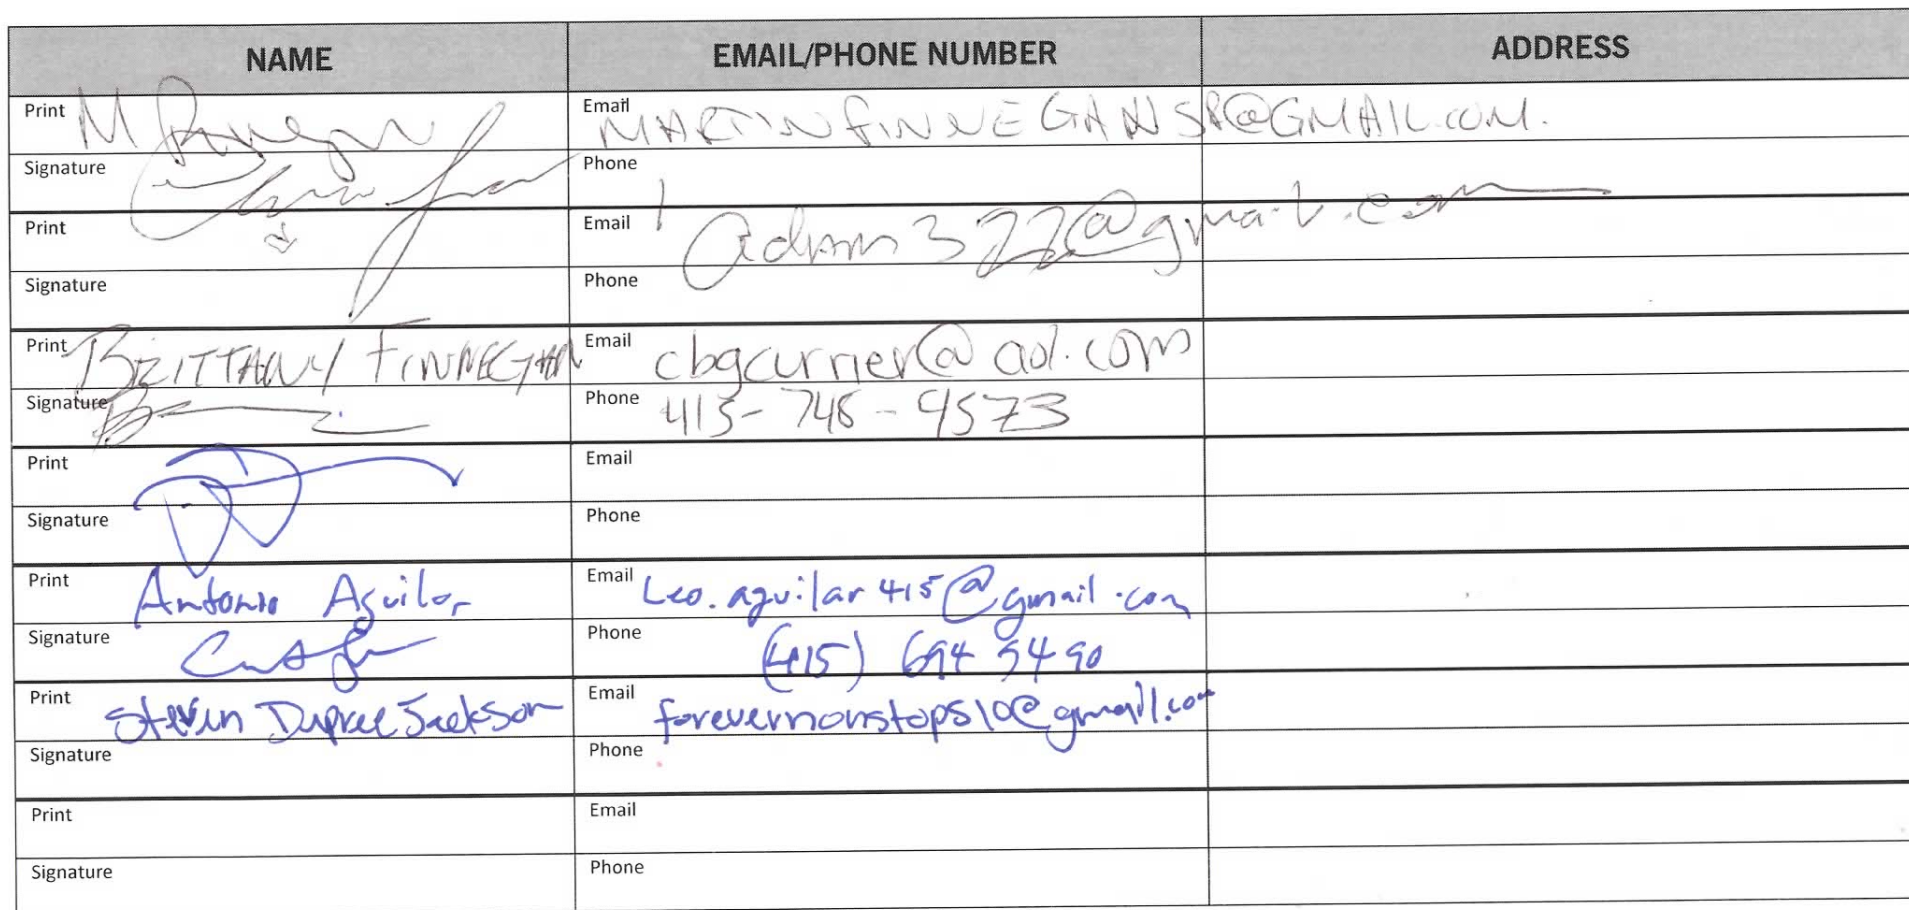 NAME EMAIL/PHONE NUMBER ADDRESS
Print M Email MARTINFINNEGANSR@GMAIL.COM.
Signature Phone
Print Email
Signature Phone
Print BRITTANY FINNEGAN Email cbgcurrier@aol.com
Signature Phone 415-748-9573
Print Email
Signature Phone
Print Antonio Aguilar Email Leo.aguilar415@gmail.com
Signature Phone (415) 694 5490
Print Steven Dupree Jackson Email forevernonstop510@gmail.com
Signature Phone
Print Email
Signature Phone